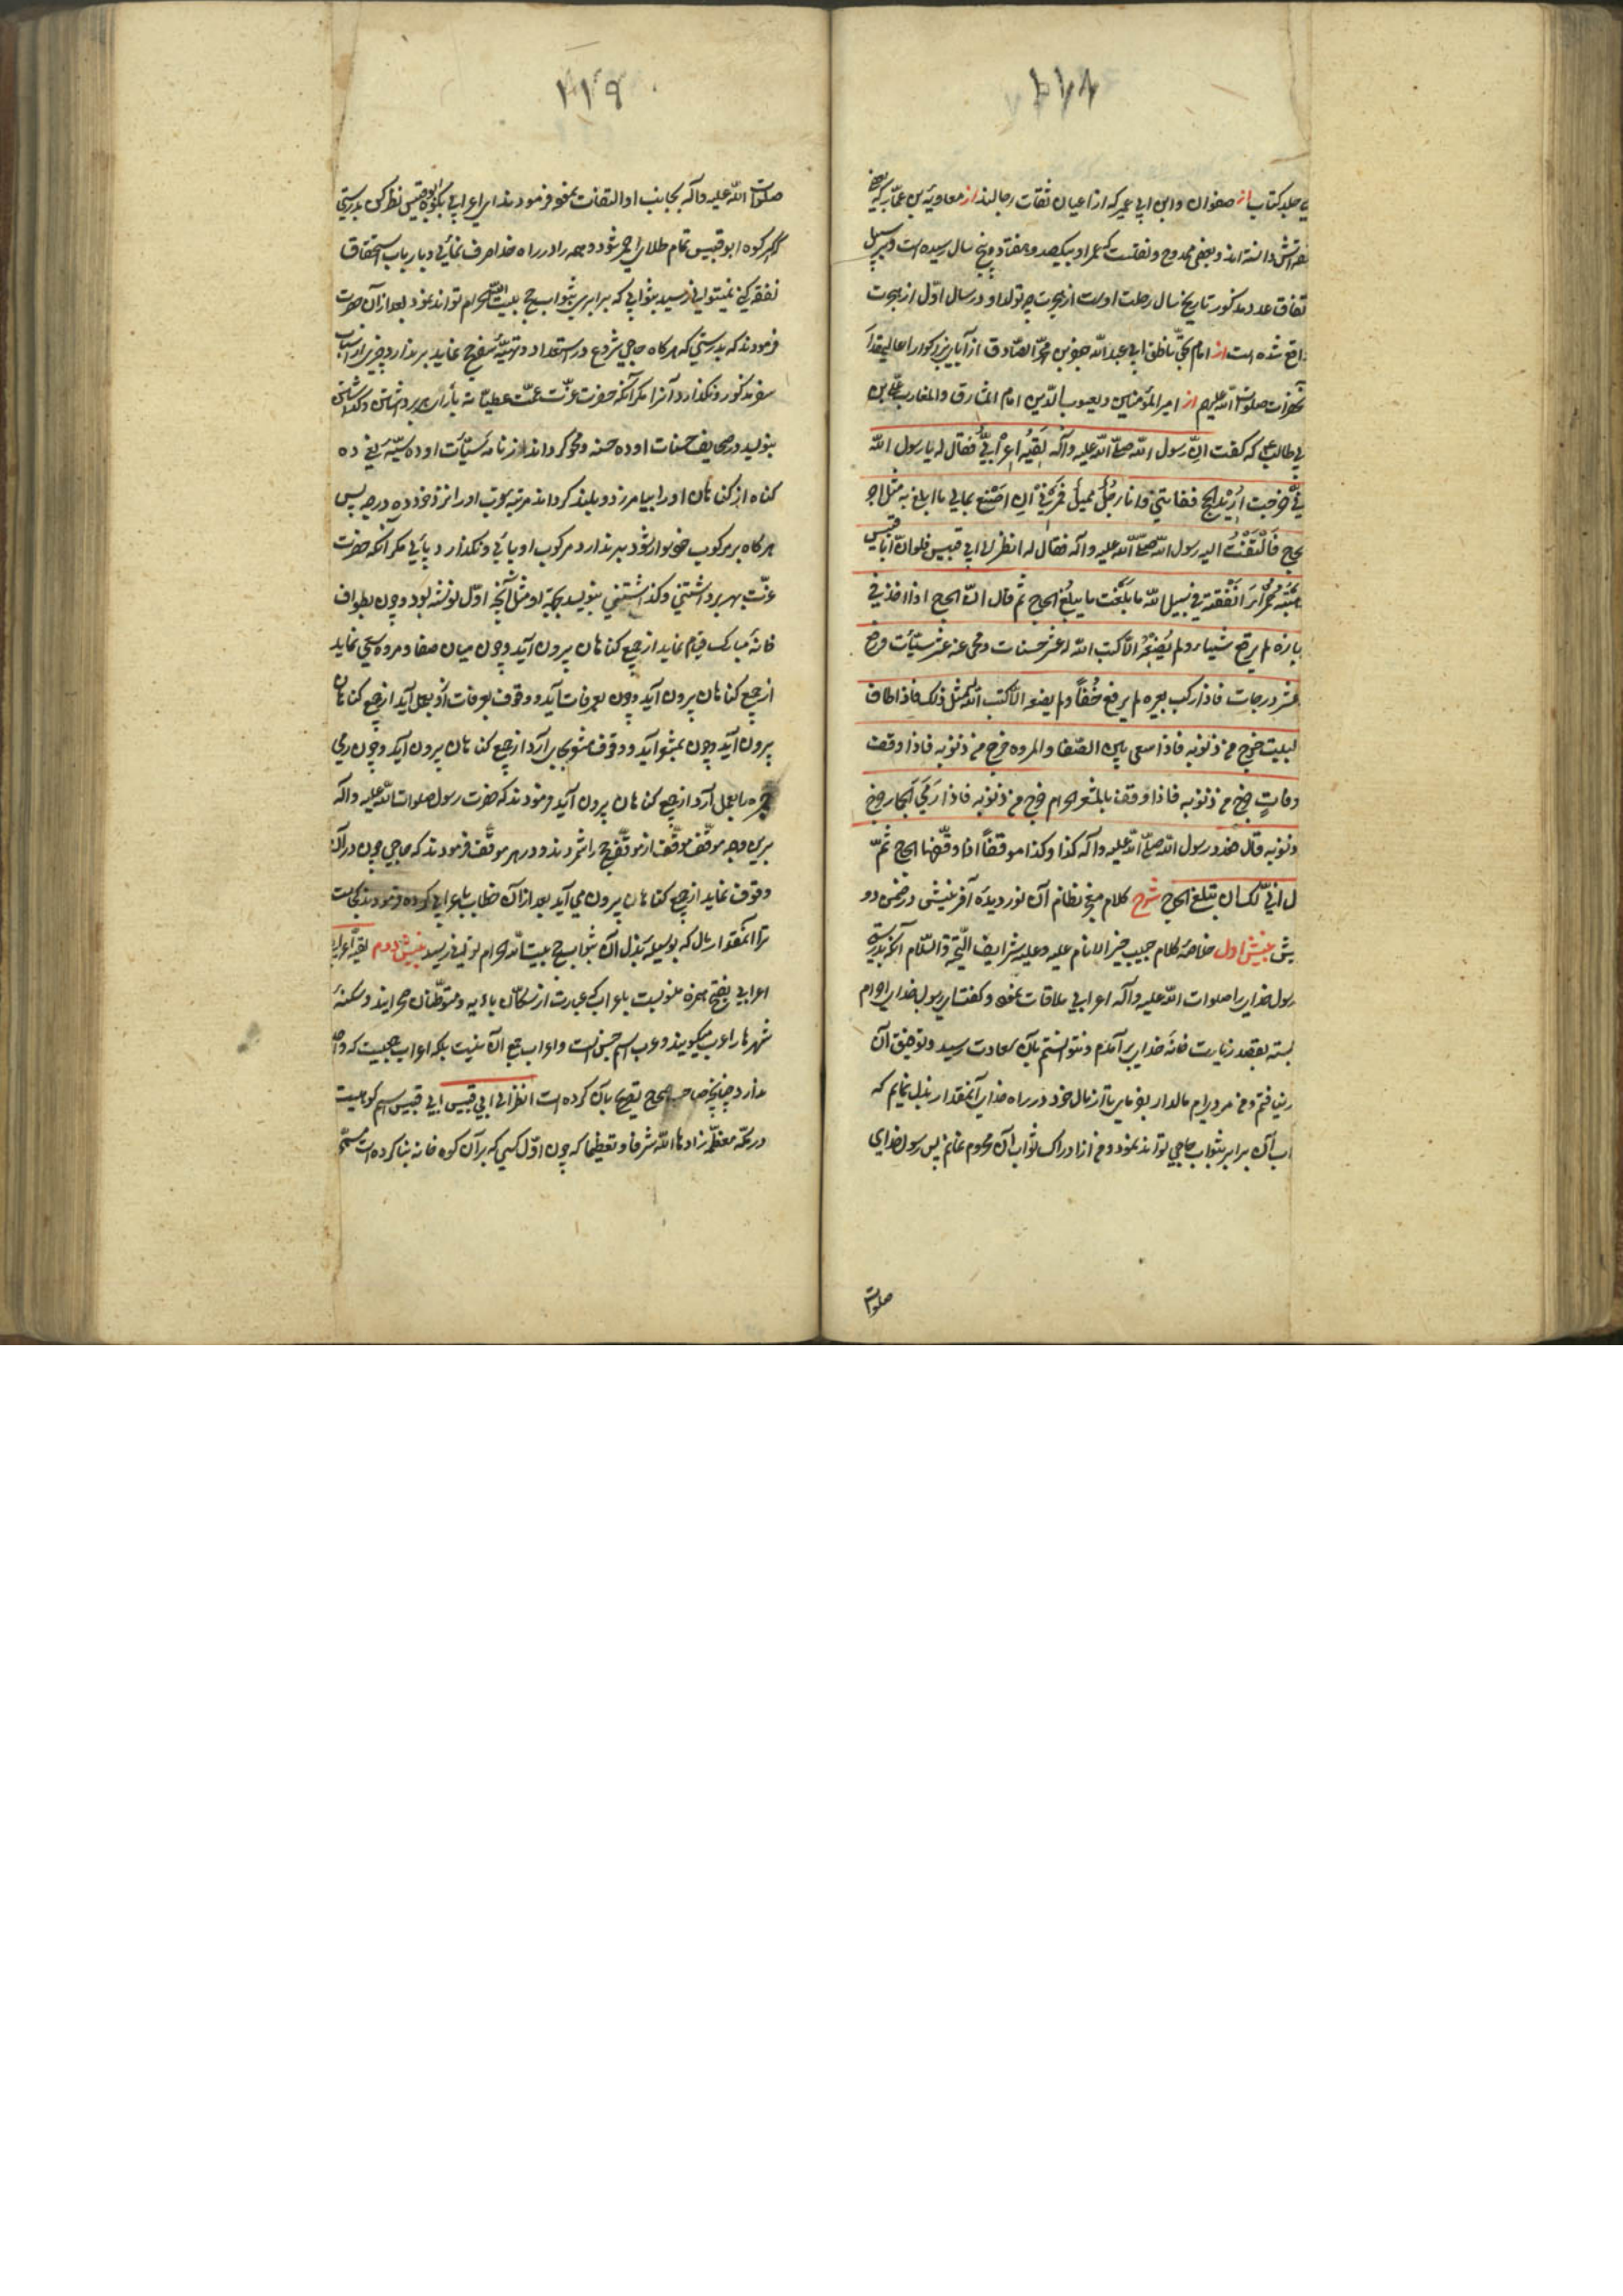 ۲۱۸
جلد کتاب از صفوان وابن ابی عمیر که از اعیان ثقات رجالند از معاویة بن عمار که بعضی
ثقه‌اش دانسته اند و بعضی ممدوح و نقلست که عمر او بیکصد و هفتاد و پنج سال رسیده است و بر سبیل
اتفاق عدد مذکور تاریخ سال رحلت اوست از هجرت چه تولد او در سال اول از هجرت
واقع شده است از امام بحق ناطق ابی عبد الله جعفر بن محمد الصادق از آبای بزرگوار عالیمقدار
آنحضرات صلوات الله علیهم از امیر المؤمنین ویعسوب الدین امام المشارق والمغارب علی بن
ابی طالب که گفت ان رسول الله صلی الله علیه وآله لقیه اعرابی فقال له یا رسول الله
انی خرجت ارید الحج ففاتنی وانا رجل ممیل فمرنی ان اصنع بمالی ما ابلغ به مثل اجر
الحج فالتفت الیه رسول الله صلی الله علیه وآله فقال له انظر الی ابی قبیس فلو ان ابا قبیس
ذهبة حمراء انفقته فی سبیل الله ما بلغت ما یبلغ الحاج ثم قال ان الحاج اذا اخذ فی
جهازه لم یرفع شیئا ولم یضعه الا کتب الله له عشر حسنات ومحی عنه عشر سیئات ورفع
عشر درجات فاذا رکب بعیره لم یرفع خفا ولم یضعه الا کتب الله له مثل ذلک فاذا طاف
بالبیت خرج من ذنوبه فاذا سعی بین الصفا والمروه خرج من ذنوبه فاذا وقف
بعرفات خرج من ذنوبه فاذا وقف بالمشعر الحرام خرج من ذنوبه فاذا رمی الجمار خرج
من ذنوبه قال فعد رسول الله صلی الله علیه وآله کذا وکذا موقفا اذا وقفها الحاج ثم
قال انی لک ان تبلغ الحاج شرح کلام نظام آن نور دیدهٔ آفرینش در ضمن دو
بینش بینش اول خلاصهٔ کلام حبیب خیر الانام علیه وعلیهم شرایف التحیة والسلام آنکه بدرستی
رسول خدای را صلوات الله علیه وآله اعرابی ملاقات نمود و گفت ای رسول خدای احرام
بسته بقصد زیارت خانهٔ خدای برآمدم و نتوانستم بآن سعادت رسید و توفیق آن
نیافتم و من مردیم مالدار بفرمای تا از مال خود در راه خدای آنمقدار بذل نمایم که
ثواب آن برابر بثواب حاجی تواند نمود و من از ادراک ثواب آن محروم نمانم پس رسول خدای
صلوات
۲۱۹
صلوات الله علیه وآله بجانب او التفات نمود و فرمودند ای اعرابی بکوه ابو قبیس نظر کن بدرستی
اگر کوه ابو قبیس تمام طلای احمر شود و همه را در راه خدا صرف نمائی و بارباب استحقاق
نفقه کنی نمیتوانی رسید بثوابی که برابری بثواب حج بیت الله الحرام تواند نمود بعد از آن حضرت
فرمودند که بدرستی که هرگاه حاجی شروع در استعداد و تهیهٔ سفر حج نماید برندارد چیزی از اسباب
سفر مذکور و نگذارد آنرا مگر آنکه حضرت عزت عمت عطیاته بازای هر برداشتن و گذاشتن
بنویسد در صحایف حسنات او ده حسنه و محو گرداند از نامهٔ سیئات او ده سیئه یعنی ده
گناه از گناهان او را بیامرزد و بلند گرداند مرتبهٔ او را نزد خود ده درجه پس
هرگاه بر مرکوب خود سوار شود برندارد مرکوب او پائی و نگذارد پائی مگر آنکه حضرت
عزت بهر برداشتنی و گذاشتنی بنویسد بجهة او مثل آنچه اول نوشته بود و چون بطواف
خانهٔ مبارک قیام نماید از جمیع گناهان بیرون آید و چون میان صفا و مروه سعی نماید
از جمیع گناهان بیرون آید و چون بعرفات آید و وقوف بعرفات ازو بعمل آید از جمیع گناهان
بیرون آید و چون بمشعر آید و وقوف مشعر بجای آرد از جمیع گناهان بیرون آید و چون رمی
جمره را بعمل آرد از جمیع گناهان بیرون آید فرمودند که حضرت رسول صلوات الله علیه وآله
برین وجه موقف موقف از مواقف حج را شمردند و در هر موقف فرمودند که حاجی چون در آن
وقوف نماید از جمیع گناهان بیرون می آید بعد از آن خطاب باعرابی کرده فرمودند کجاست
ترا آنمقدار مال که بوسیلهٔ بذل آن بثواب حج بیت الله الحرام توانی رسید بینش دوم لقیه اعرابی
اعرابی بفتح همزه منسوبست باعراب که عبارت از سکان بادیه و متوطنان صحرایند و سکنهٔ
شهرها را عرب میگویند و عرب اسم جنس است و اعراب جمع آن نیست بلکه اعراب جمعیست که واحد
ندارد چنانچه صاحب صحاح تصریح بآن کرده است انظر الی ابی قبیس ابی قبیس اسم کوهیست
در مکهٔ معظمه زادها الله شرفا وتعظیما که چون اول کسی که بر آن کوه خانه بنا کرده است مسمی